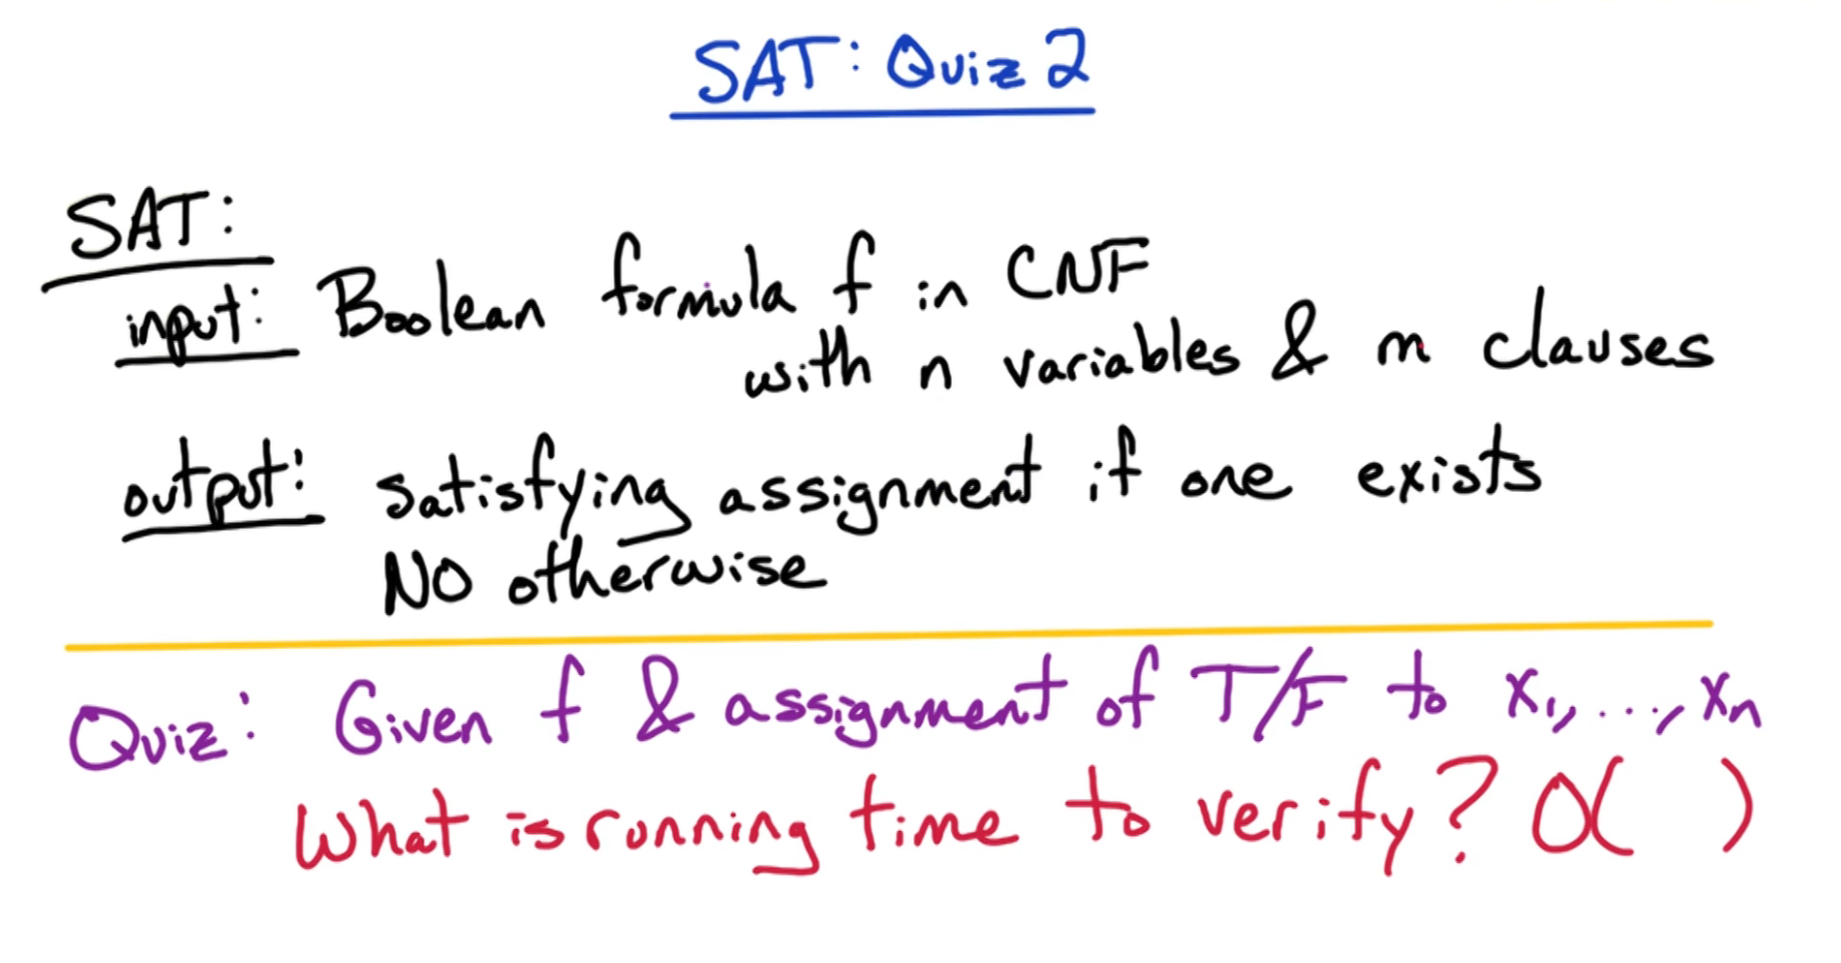 SAT: Quiz 2
SAT:
input: Boolean formula f in CNF
with n variables & m clauses
output: satisfying assignment if one exists
NO otherwise
Quiz: Given f & assignment of T/F to x₁,...,xₙ
What is running time to verify? O( )